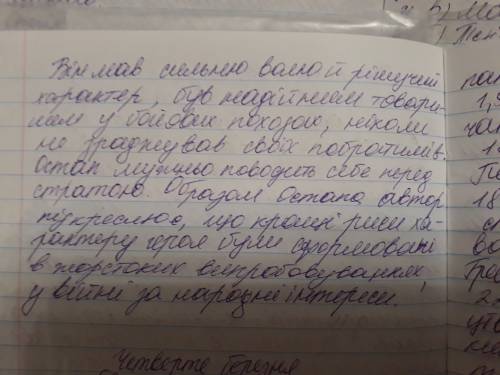 Він мав сильную волю й рішучий
характер, був надійнием товари-
шем у бойових походах, ніколи
не зраджував своїх побратимів.
Остап мужньо поводить себе перед
стратою. Образом Остапа автор
підкреслює, що кращі риси ха-
рактеру героя були сформовані
в жорстоких випробовуваннях,
у війні за народні інтереси.
Четверте березня